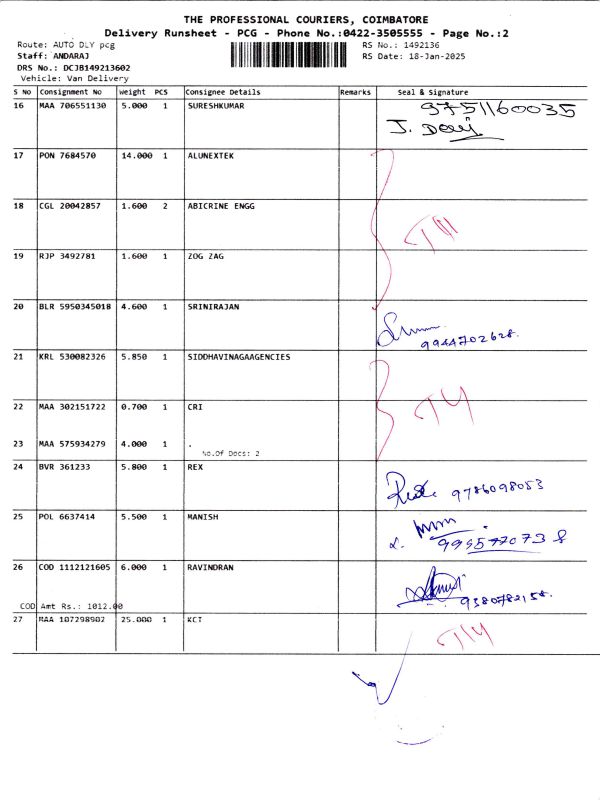 THE PROFESSIONAL COURIERS, COIMBATORE
Delivery Runsheet - PCG - Phone No.:0422-3505555 - Page No.:2
Route: AUTO DLY pcg RS No.: 1492136
Staff: ANDARAJ RS Date: 18-Jan-2025
DRS No.: DCJB149213602
Vehicle: Van Delivery
S No Consignment No Weight PCS Consignee Details Remarks Seal & Signature
16 MAA 706551130 5.000 1 SURESHKUMAR 9751160035
J. Devi
17 PON 7684570 14.000 1 ALUNEXTEK
18 CGL 20042857 1.600 2 ABICRINE ENGG
19 RJP 3492781 1.600 1 ZOG ZAG
20 BLR 5950345018 4.600 1 SRINIRAJAN
9944702628.
21 KRL 530082326 5.850 1 SIDDHAVINAGAAGENCIES
22 MAA 302151722 0.700 1 CRI
23 MAA 575934279 4.000 1 .
No.Of Docs: 2
24 BVR 361233 5.800 1 REX
9786098053
25 POL 6637414 5.500 1 MANISH
26 COD 1112121605 6.000 1 RAVINDRAN
9380782158.
COD Amt Rs.: 1012.00
27 MAA 107298902 25.000 1 KCT